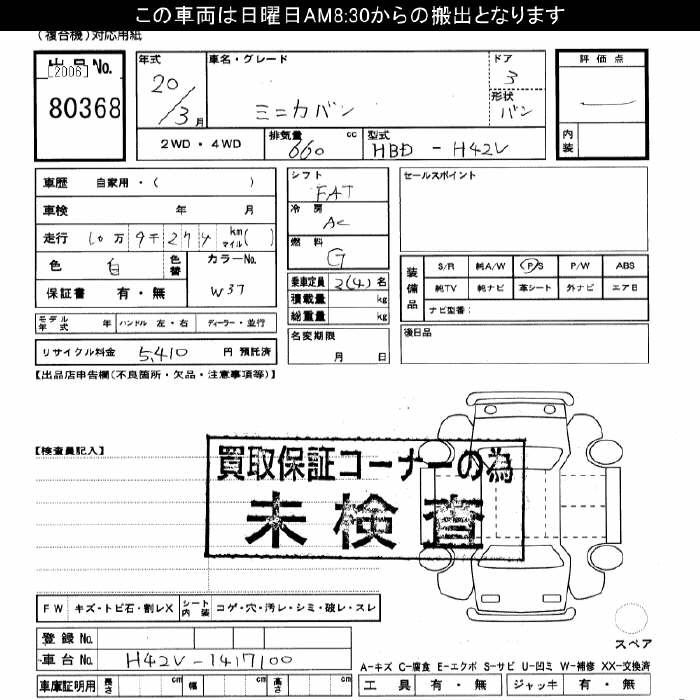 この車両は日曜日AM8:30からの搬出となります
(複合機)対応用紙
出品No. [2006]
80368
年式 20/3月
車名・グレード ミニカバン
ドア 3
形状 バン
評価点
内装
2WD・4WD
排気量 660 cc
型式 HBD - H42V
車歴 自家用・( )
車検 年 月
走行 10万 9千 274 km マイル( )
色 白 色替
カラーNo. W37
保証書 有・無
モデル年式 年 ハンドル 左・右 ディーラー・並行
リサイクル料金 5,410 円 預託済
シフト FAT
冷房 AC
燃料 G
乗車定員 2(4) 名
積載量 kg
総重量 kg
名変期限 月 日
セールスポイント
装備品
S/R 純A/W P/S P/W ABS
純TV 純ナビ 革シート 外ナビ エアB
ナビ型番:
後日品
【出品店申告欄(不良箇所・欠品・注意事項等)】
【検査員記入】
買取保証コーナーの為
未検査
FW キズ・トビ石・割レX シート内装 コゲ・穴・汚レ・シミ・破レ・スレ
登録No.
車台No. H42V-1417100
車庫証明用 長さ cm 幅 cm 高さ cm
スペア
A-キズ C-腐食 E-エクボ S-サビ U-凹ミ W-補修 XX-交換済
工具 有・無 ジャッキ 有・無